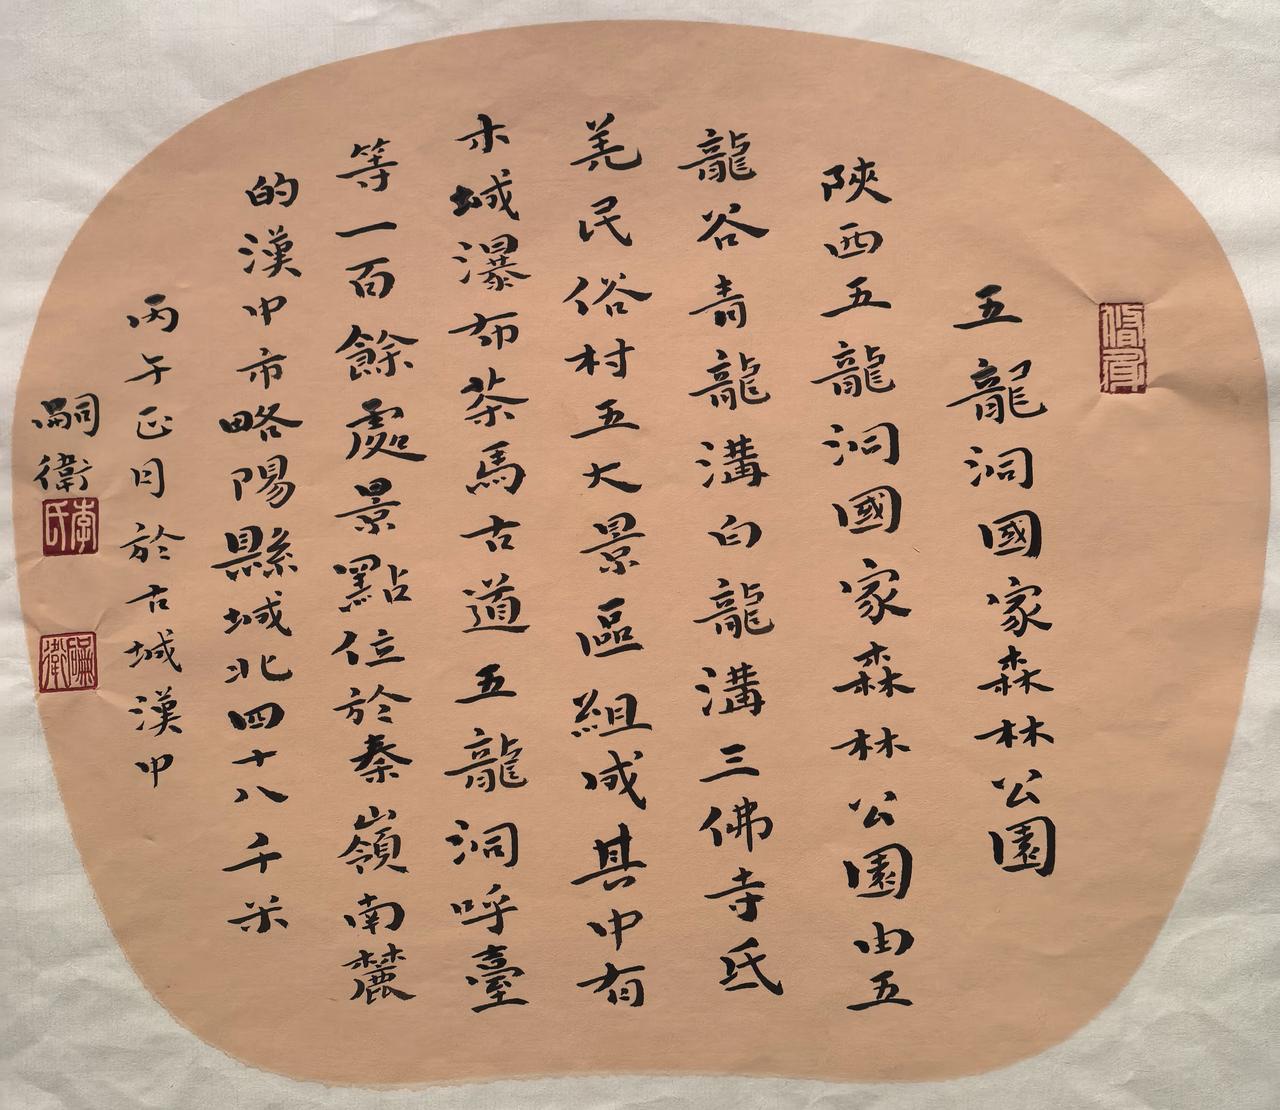 五龍洞國家森林公園
陝西五龍洞國家森林公園由五
龍谷青龍溝白龍溝三佛寺氐
羌民俗村五大景區組成其中有
木城瀑布茶馬古道五龍洞呼臺
等一百餘處景點位於秦嶺南麓
的漢中市略陽縣城北四十八千米
丙午正月於古城漢中
嗣衛
李氏
嗣衛